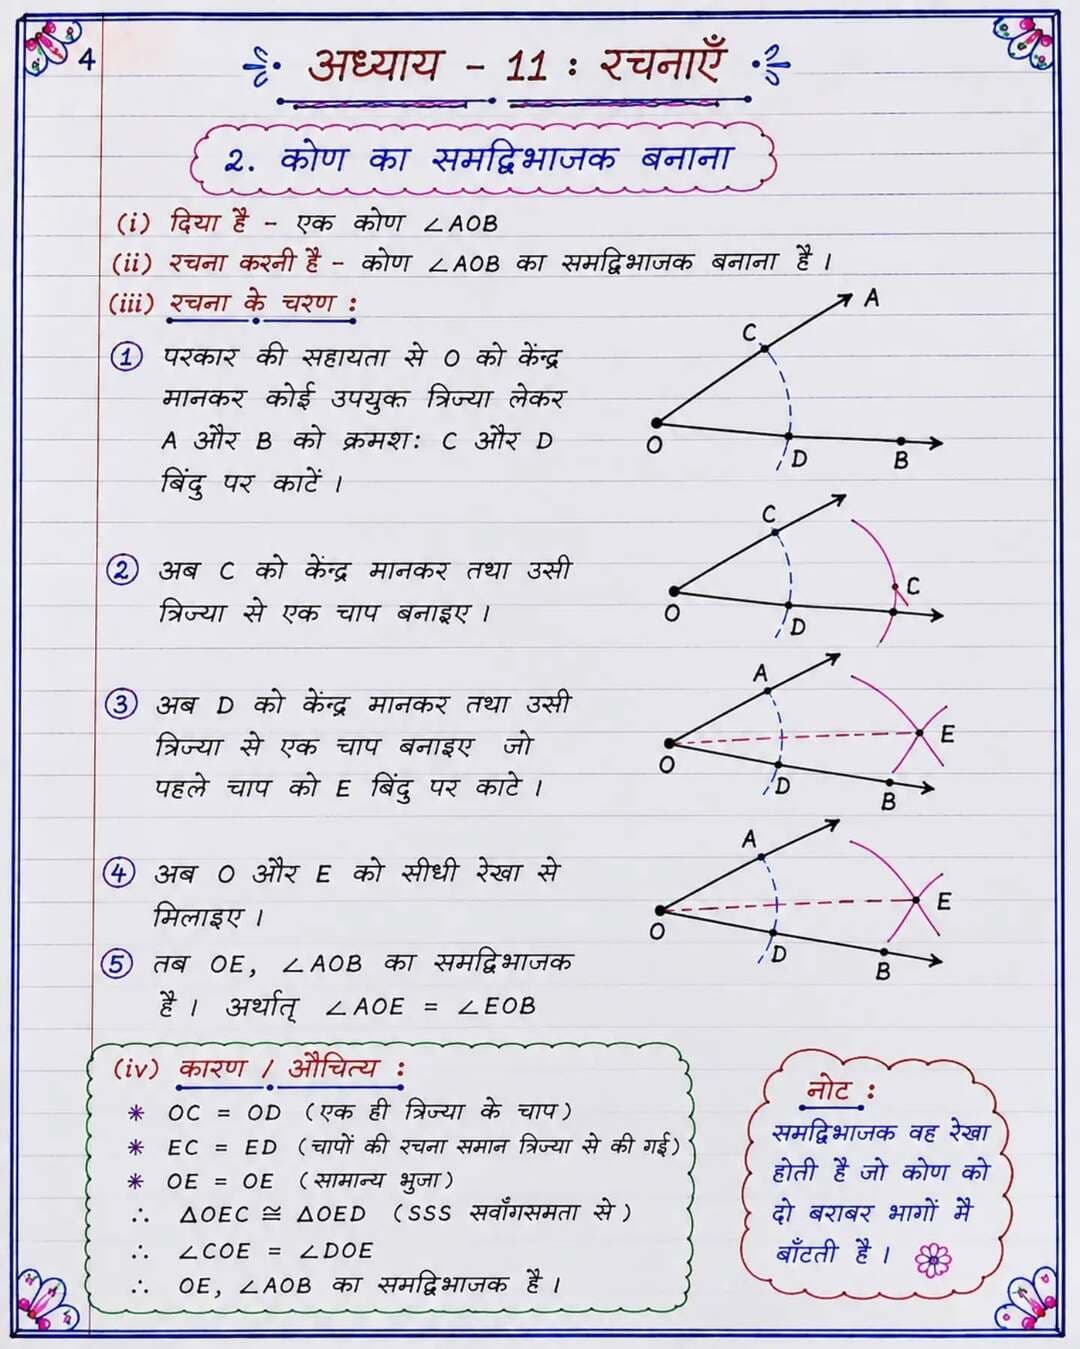 4
अध्याय - 11 : रचनाएँ
2. कोण का समद्विभाजक बनाना
(i) दिया है - एक कोण ∠AOB
(ii) रचना करनी है - कोण ∠AOB का समद्विभाजक बनाना है ।
(iii) रचना के चरण :
① परकार की सहायता से O को केंन्द्र
मानकर कोई उपयुक त्रिज्या लेकर
A और B को क्रमशः C और D
बिंदु पर काटें ।
A
C
O
D
B
② अब C को केंन्द्र मानकर तथा उसी
त्रिज्या से एक चाप बनाइए ।
C
C
O
D
③ अब D को केंन्द्र मानकर तथा उसी
त्रिज्या से एक चाप बनाइए जो
पहले चाप को E बिंदु पर काटे ।
A
E
O
D
B
④ अब O और E को सीधी रेखा से
मिलाइए ।
A
E
O
D
B
⑤ तब OE, ∠AOB का समद्विभाजक
है । अर्थात् ∠AOE = ∠EOB
(iv) कारण / औचित्य :
* OC = OD (एक ही त्रिज्या के चाप)
* EC = ED (चापों की रचना समान त्रिज्या से की गई)
* OE = OE (सामान्य भुजा)
∴ △OEC ≅ △OED (SSS सर्वांगसमता से)
∴ ∠COE = ∠DOE
∴ OE, ∠AOB का समद्विभाजक है ।
नोट :
समद्विभाजक वह रेखा
होती है जो कोण को
दो बराबर भागों मै
बाँटती है ।